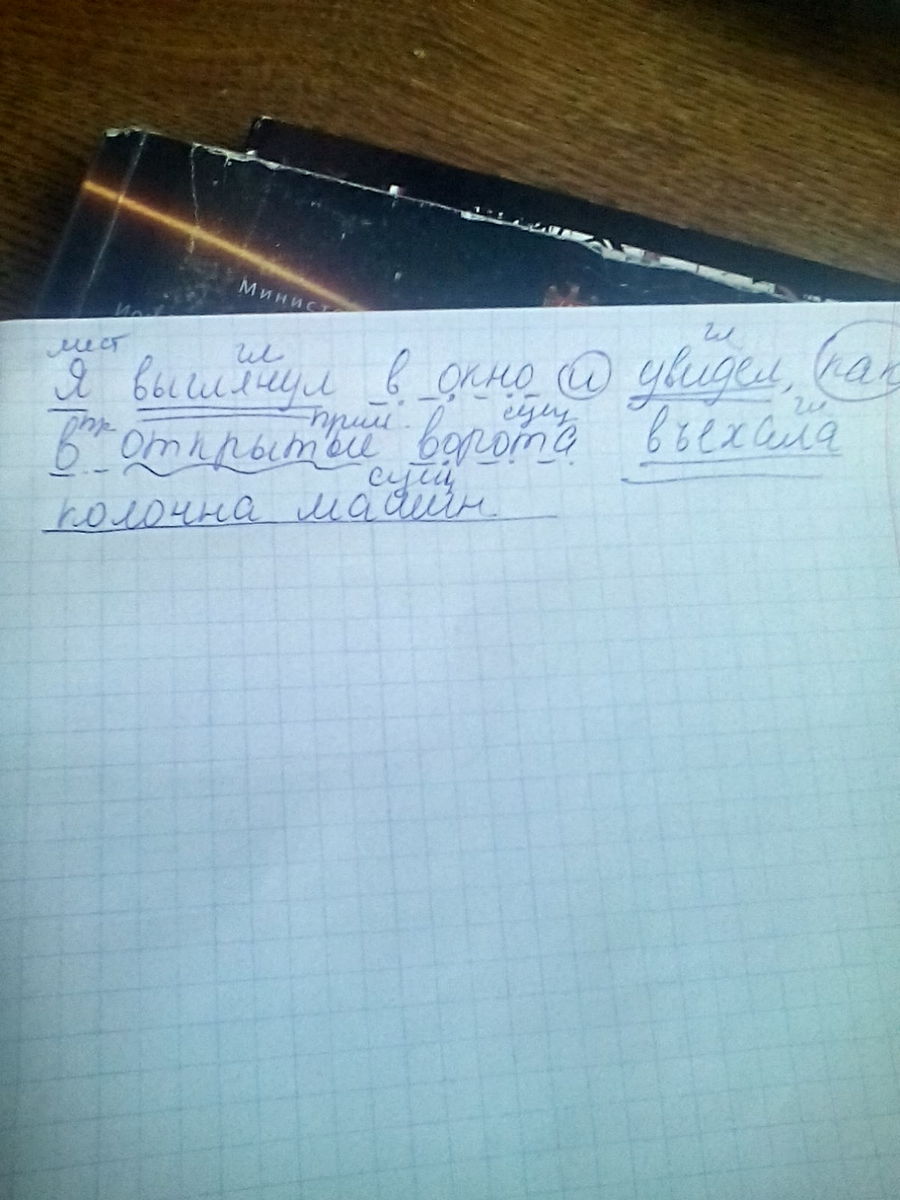 Минист
мест гл гл
Я выглянул в окно и увидел, как
пр прил. сущ гл
в открытые ворота въехала
сущ
колочна машин